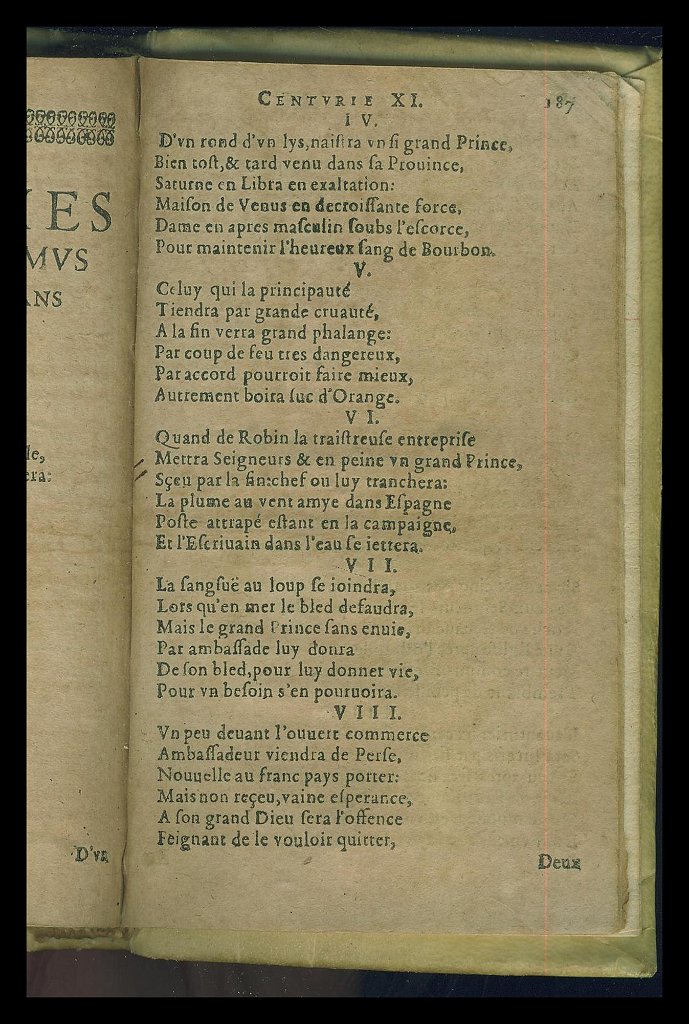 YES
MVS
ANS
le,
era:
D'vn
CENTVRIE XI. 187
IV.
D'vn rond d'vn lys,naiſtra vn ſi grand Prince,
Bien toſt,& tard venu dans ſa Prouince,
Saturne en Libra en exaltation:
Maiſon de Venus en decroiſſante force,
Dame en apres maſculin ſoubs l'eſcorce,
Pour maintenir l'heureux ſang de Bourbon.
V.
Celuy qui la principauté
Tiendra par grande cruauté,
A la fin verra grand phalange:
Par coup de feu tres dangereux,
Par accord pourroit faire mieux,
Autrement boira ſuc d'Orange.
VI.
Quand de Robin la traiſtreuſe entrepriſe
Mettra Seigneurs & en peine vn grand Prince,
Sçeu par la fin:chef ou luy tranchera:
La plume au vent amye dans Eſpagne
Poſte attrapé eſtant en la campaigne,
Et l'Eſcriuain dans l'eau ſe iettera.
VII.
La ſangſuë au loup ſe ioindra,
Lors qu'en mer le bled defaudra,
Mais le grand Prince ſans enuie,
Par ambaſſade luy donra
De ſon bled,pour luy donner vie,
Pour vn beſoin s'en pouruoira.
VIII.
Vn peu deuant l'ouuert commerce
Ambaſſadeur viendra de Perſe,
Nouuelle au franc pays porter:
Mais non reçeu,vaine eſperance,
A ſon grand Dieu ſera l'offence
Feignant de le vouloir quitter,
Deux